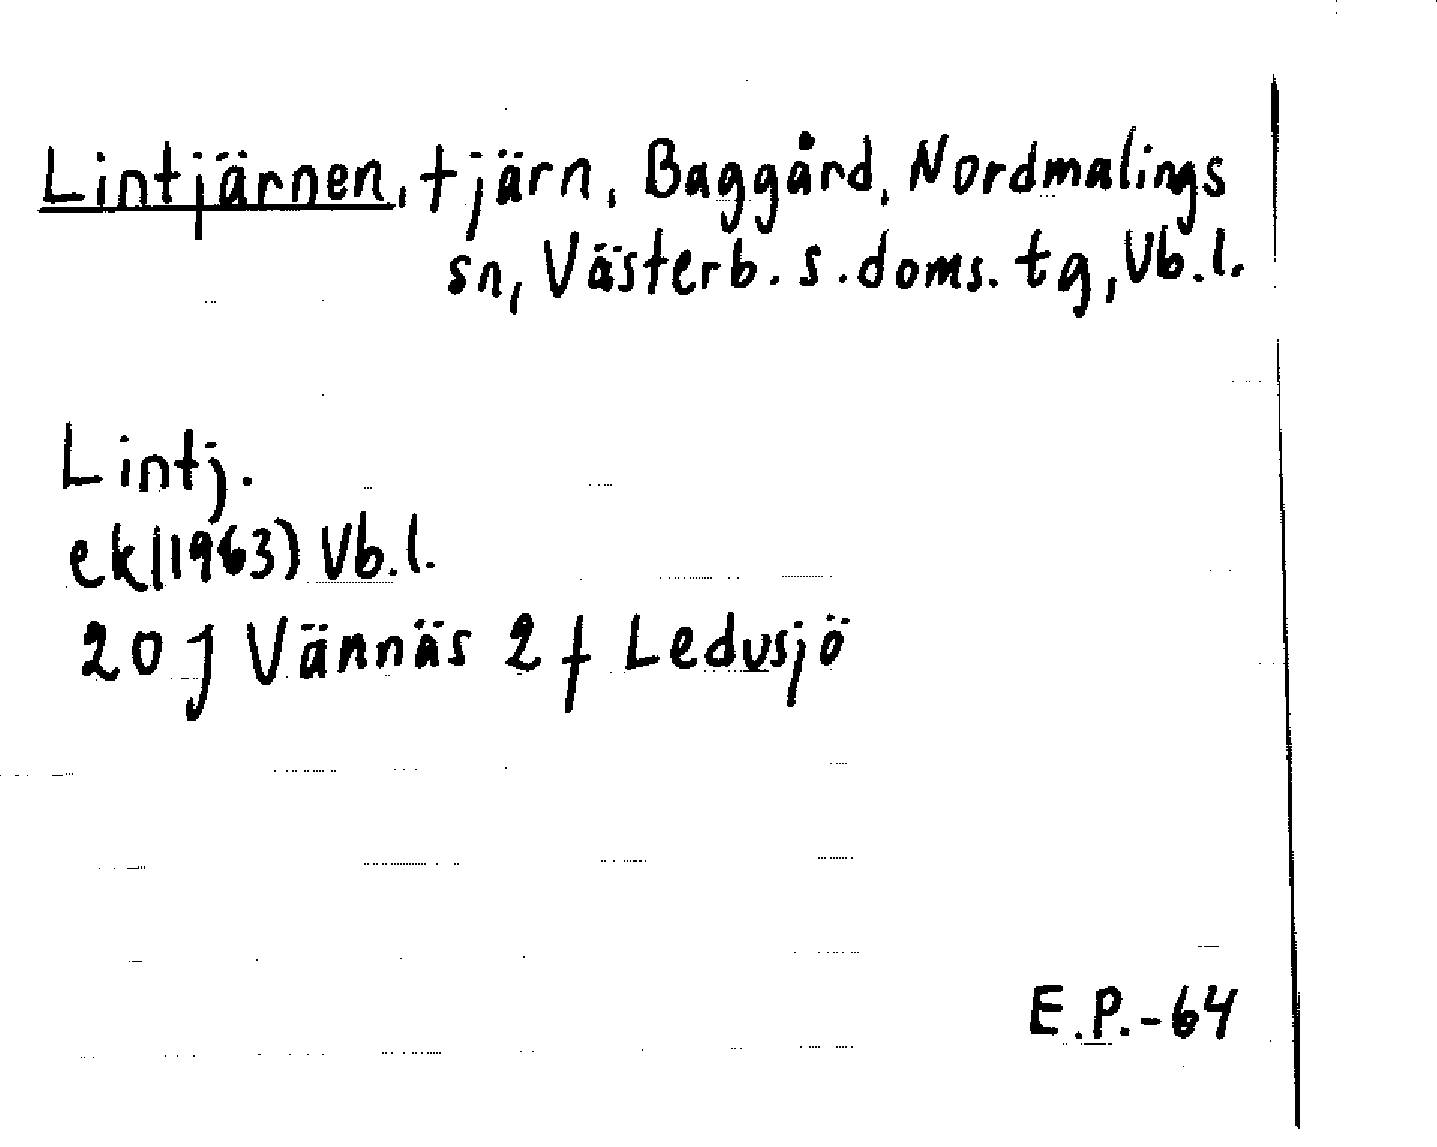 Lintjärnen, tjärn, Baggård, Nordmalings
sn, Västerb. s. doms. tg, Vb. l.
Lintj.
ek (1963) Vb. l.
20 J Vännäs 2 f Ledusjö
E.P.-64